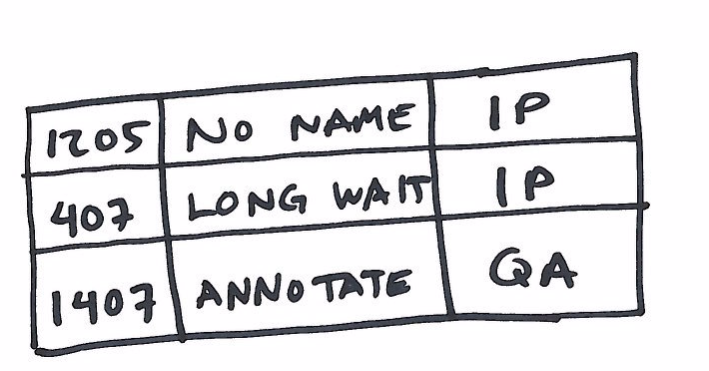 1205 NO NAME IP
407 LONG WAIT IP
1407 ANNOTATE QA